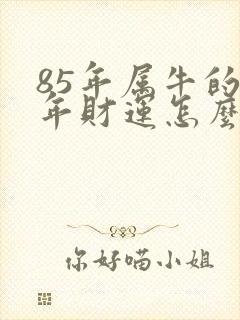 85年属牛的
年财运怎麽
你好喵小姐